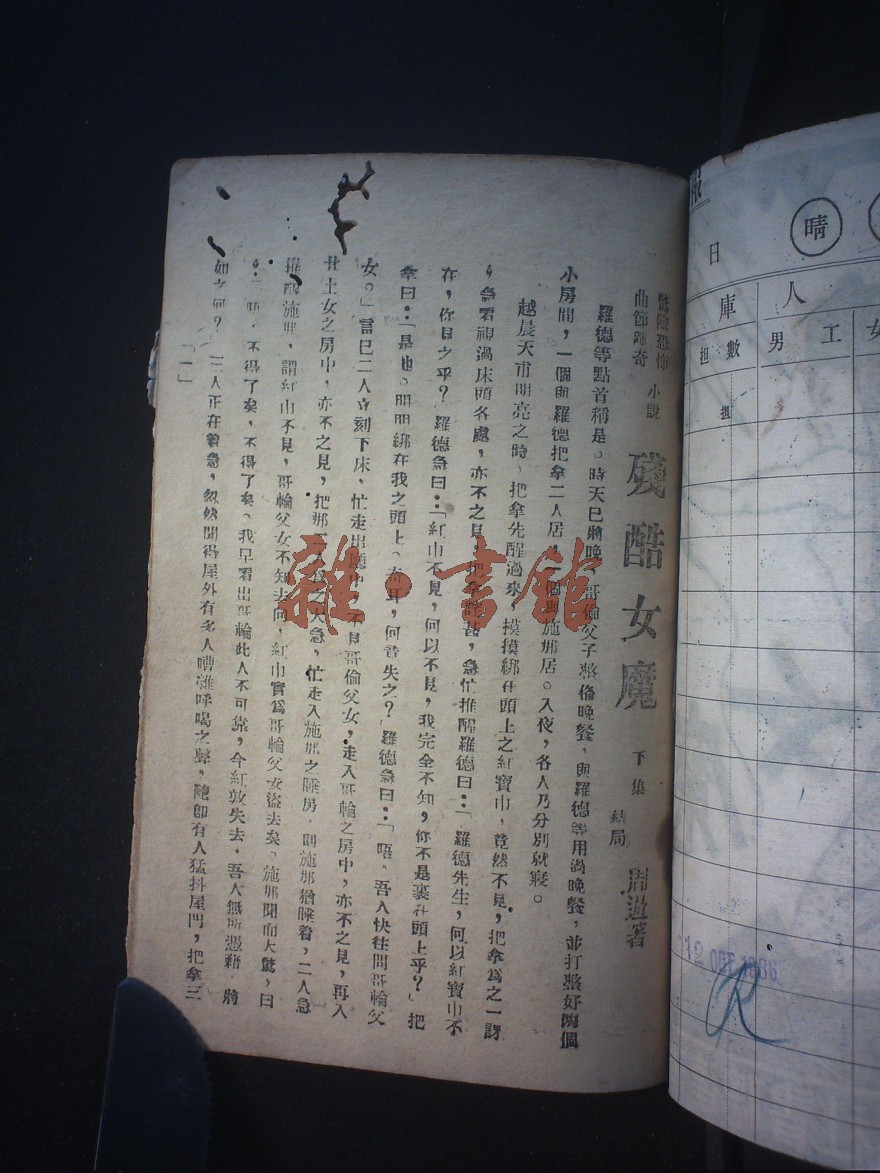 驚險恐怖
曲節離奇
小說
殘酷女魔
下集
結局
周過著
羅德等點首稱是。時天已將晚，哥倫父子整備晚餐，與羅德等用過晚餐，並打整好兩個
小房間，一個與羅德把拿二人居，一個與施那居。入夜，各人乃分別就寢。
越晨天甫明亮之時，把拿先醒過來，摸摸綁在頭上之紅寶巾，竟然不見，把拿為之一訝
，急看神過床頭各處，亦不之見，把拿甚，急忙推醒羅德曰：「羅德先生，何以紅寶巾不
在，你見之乎？羅德急曰：「紅巾不見，何以不見，我完全不知，你不是裹在頭上乎？把
拿曰：「是也。明明綁在我之頭上。布耳，何曾失之？」羅德急曰：「唔，吾人快往問哥輪父
女。」言已二人立刻下床，忙走出廳中，不見哥倫父女，走入哥輪之房中，亦不之見，再入
廿土女之房中，亦不之見，把那二人為之大急，忙走入施那之睡房，則施那猶睡着，二人急
推醒施那，謂紅巾不見，哥輪父女不知去向，紅巾實為哥輪父女盜去矣。施那聞而大驚，曰
：「唔，不得了矣，不得了矣。我早看出哥輪此人不可靠，今紅敦失去，吾人無所憑藉，將
如之何？」三人正在着急，忽然聞得屋外有多人嘈雜呼喝之聲，隨即有人猛抖屋門，把拿三
「一」
雜·書館
報
晴
日
庫
人
担數
男工
女
担
12 OCT 1986